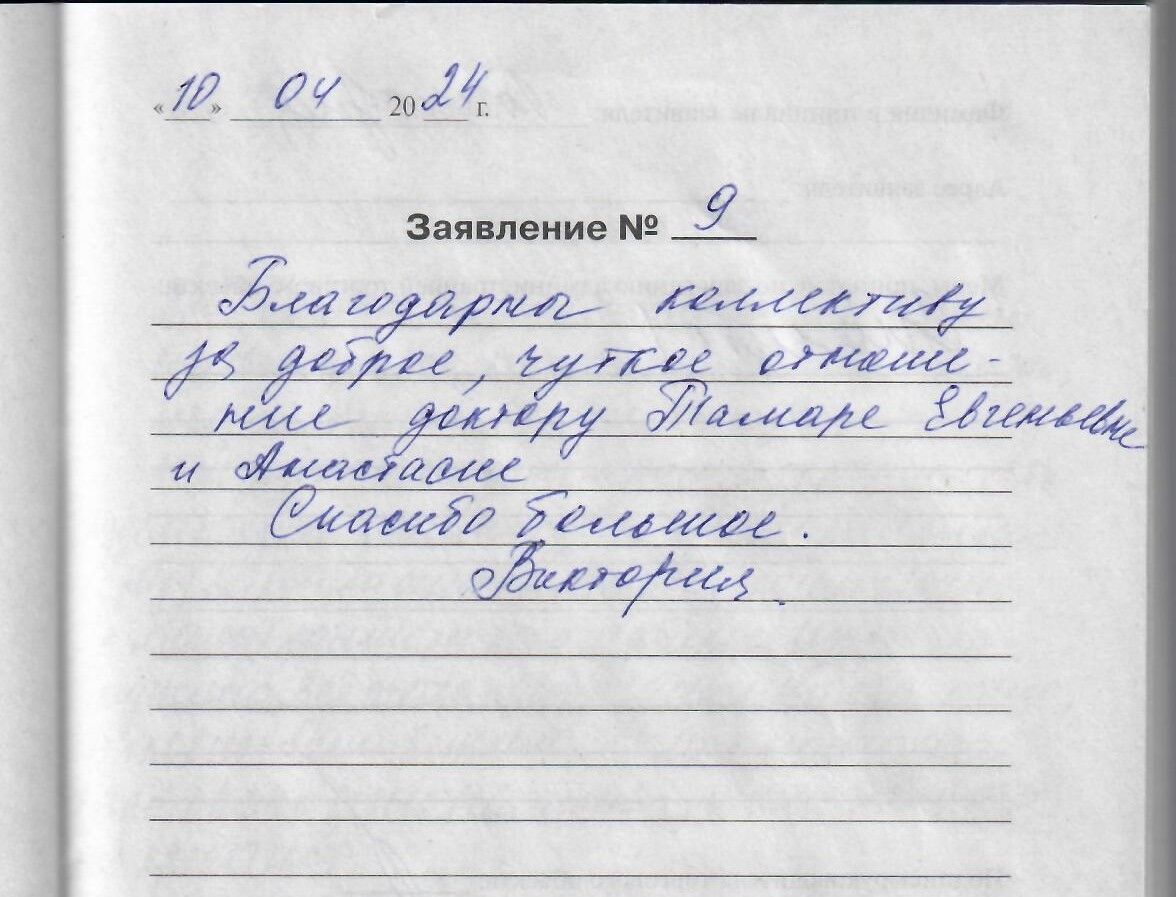 «10» 04 2024 г.
Заявление № 9
Благодарны коллективу
за доброе, чуткое отноше-
ние доктору Тамаре Евгеньевне
и Анастасие
Спасибо большое.
Виктория.